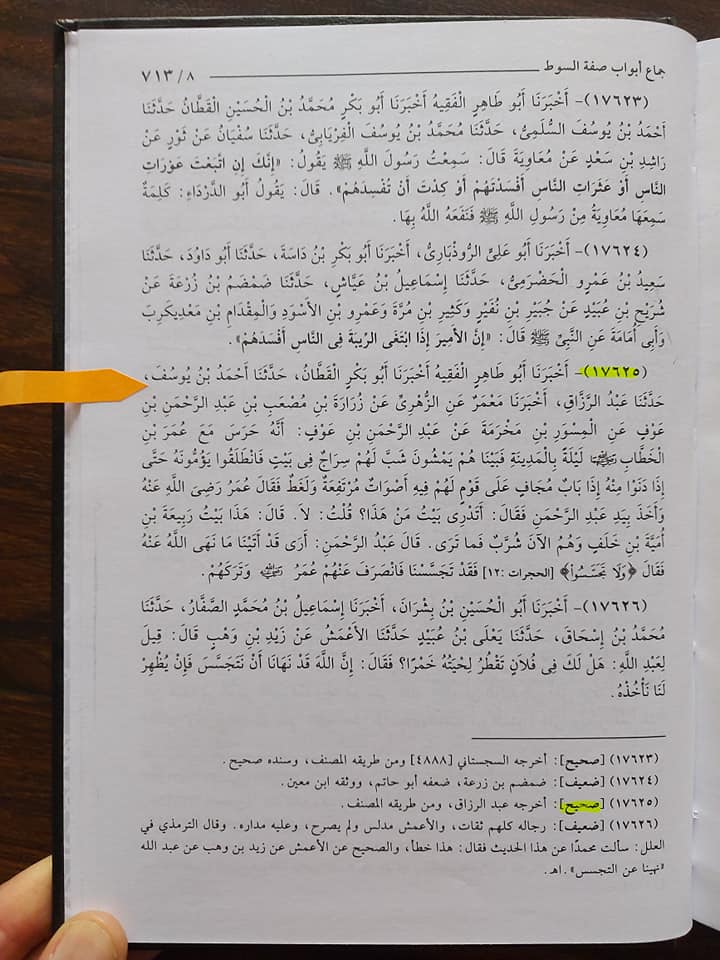 جماع أبواب صفة السوط ٨/ ٧١٣
(١٧٦٢٣)- أَخْبَرَنَا أَبُو طَاهِرٍ الْفَقِيهُ أَخْبَرَنَا أَبُو بَكْرٍ مُحَمَّدُ بْنُ الْحُسَيْنِ الْقَطَّانُ حَدَّثَنَا
أَحْمَدُ بْنُ يُوسُفَ السُّلَمِىُّ، حَدَّثَنَا مُحَمَّدُ بْنُ يُوسُفَ الْفِرْيَابِىُّ، حَدَّثَنَا سُفْيَانُ عَنْ ثَوْرٍ عَنْ
رَاشِدِ بْنِ سَعْدٍ عَنْ مُعَاوِيَةَ قَالَ: سَمِعْتُ رَسُولَ اللَّهِ ﷺ يَقُولُ: «إِنَّكَ إِنِ اتَّبَعْتَ عَوْرَاتِ
النَّاسِ أَوْ عَثَرَاتِ النَّاسِ أَفْسَدْتَهُمْ أَوْ كِدْتَ أَنْ تُفْسِدَهُمْ». قَالَ: يَقُولُ أَبُو الدَّرْدَاءِ: كَلِمَةٌ
سَمِعَهَا مُعَاوِيَةُ مِنْ رَسُولِ اللَّهِ ﷺ فَنَفَعَهُ اللَّهُ بِهَا.
(١٧٦٢٤)- أَخْبَرَنَا أَبُو عَلِىٍّ الرُّوذْبَارِىُّ، أَخْبَرَنَا أَبُو بَكْرِ بْنُ دَاسَةَ، حَدَّثَنَا أَبُو دَاوُدَ، حَدَّثَنَا
سَعِيدُ بْنُ عَمْرٍو الْحَضْرَمِىُّ، حَدَّثَنَا إِسْمَاعِيلُ بْنُ عَيَّاشٍ، حَدَّثَنَا ضَمْضَمُ بْنُ زُرْعَةَ عَنْ
شُرَيْحِ بْنِ عُبَيْدٍ عَنْ جُبَيْرِ بْنِ نُفَيْرٍ وَكَثِيرِ بْنِ مُرَّةَ وَعَمْرِو بْنِ الأَسْوَدِ وَالْمِقْدَامِ بْنِ مَعْدِيكَرِبَ
وَأَبِى أُمَامَةَ عَنِ النَّبِىِّ ﷺ قَالَ: «إِنَّ الأَمِيرَ إِذَا ابْتَغَى الرِّيبَةَ فِى النَّاسِ أَفْسَدَهُمْ».
(١٧٦٢٥)- أَخْبَرَنَا أَبُو طَاهِرٍ الْفَقِيهُ أَخْبَرَنَا أَبُو بَكْرٍ الْقَطَّانُ، حَدَّثَنَا أَحْمَدُ بْنُ يُوسُفَ،
حَدَّثَنَا عَبْدُ الرَّزَّاقِ، أَخْبَرَنَا مَعْمَرٌ عَنِ الزُّهْرِىِّ عَنْ زُرَارَةَ بْنِ مُصْعَبِ بْنِ عَبْدِ الرَّحْمَنِ بْنِ
عَوْفٍ عَنِ الْمِسْوَرِ بْنِ مَخْرَمَةَ عَنْ عَبْدِ الرَّحْمَنِ بْنِ عَوْفٍ: أَنَّهُ حَرَسَ مَعَ عُمَرَ بْنِ
الْخَطَّابِ رضي الله عنه لَيْلَةً بِالْمَدِينَةِ فَبَيْنَا هُمْ يَمْشُونَ شَبَّ لَهُمْ سِرَاجٌ فِى بَيْتٍ فَانْطَلَقُوا يَؤُمُّونَهُ حَتَّى
إِذَا دَنَوْا مِنْهُ إِذَا بَابٌ مُجَافٍ عَلَى قَوْمٍ لَهُمْ فِيهِ أَصْوَاتٌ مُرْتَفِعَةٌ وَلَغَطٌ فَقَالَ عُمَرُ رَضِىَ اللَّهُ عَنْهُ
وَأَخَذَ بِيَدِ عَبْدِ الرَّحْمَنِ فَقَالَ: أَتَدْرِى بَيْتُ مَنْ هَذَا؟ قُلْتُ: لاَ. قَالَ: هَذَا بَيْتُ رَبِيعَةَ بْنِ
أُمَيَّةَ بْنِ خَلَفٍ وَهُمُ الآنَ شُرَّبٌ فَمَا تَرَى. قَالَ عَبْدُ الرَّحْمَنِ: أَرَى قَدْ أَتَيْنَا مَا نَهَى اللَّهُ عَنْهُ
فَقَالَ ﴿وَلَا تَجَسَّسُوا﴾ [الحجرات :١٢] فَقَدْ تَجَسَّسْنَا فَانْصَرَفَ عَنْهُمْ عُمَرُ رضي الله عنه وَتَرَكَهُمْ.
(١٧٦٢٦)- أَخْبَرَنَا أَبُو الْحُسَيْنِ بْنُ بِشْرَانَ، أَخْبَرَنَا إِسْمَاعِيلُ بْنُ مُحَمَّدٍ الصَّفَّارُ، حَدَّثَنَا
مُحَمَّدُ بْنُ إِسْحَاقَ، حَدَّثَنَا يَعْلَى بْنُ عُبَيْدٍ حَدَّثَنَا الأَعْمَشُ عَنْ زَيْدِ بْنِ وَهْبٍ قَالَ: قِيلَ
لِعَبْدِ اللَّهِ: هَلْ لَكَ فِى فُلاَنٍ تَقْطُرُ لِحْيَتُهُ خَمْرًا؟ فَقَالَ: إِنَّ اللَّهَ قَدْ نَهَانَا أَنْ نَتَجَسَّسَ فَإِنْ يُظْهِرْ
لَنَا نَأْخُذْهُ.
(١٧٦٢٣) [صحيح]: أخرجه السجستاني [٤٨٨٨] ومن طريقه المصنف، وسنده صحيح.
(١٧٦٢٤) [ضعيف]: ضمضم بن زرعة، ضعفه أبو حاتم، ووثقه ابن معين.
(١٧٦٢٥) [صحيح]: أخرجه عبد الرزاق، ومن طريقه المصنف.
(١٧٦٢٦) [ضعيف]: رجاله كلهم ثقات، والأعمش مدلس ولم يصرح، وعليه مداره. وقال الترمذي في
العلل: سألت محمدًا عن هذا الحديث فقال: هذا خطأ، والصحيح عن الأعمش عن زيد بن وهب عن عبد الله
«نهينا عن التجسس».اهـ.